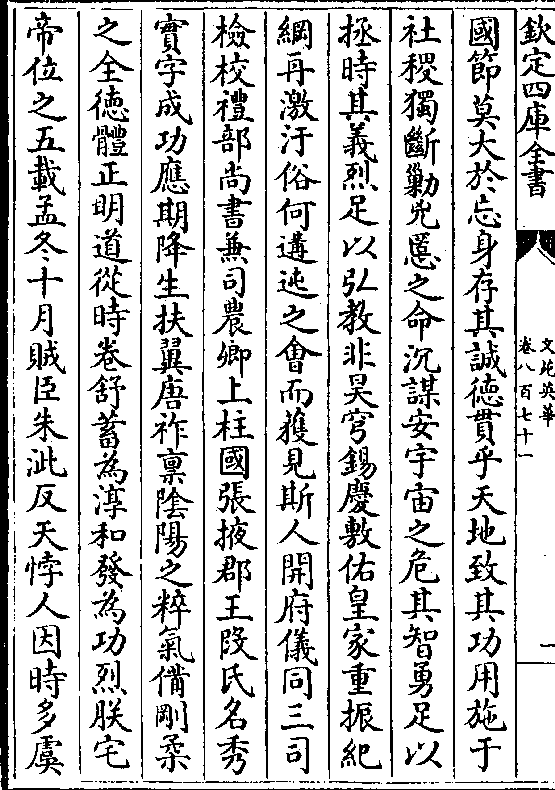 欽定四庫全書
文苑英華
卷八百七十一
一
國節莫大於忘身存其誠徳貫乎天地致其功用施于
社稷獨斷勦兇慝之命沉謀安宇宙之危其智勇足以
拯時其義烈足以弘教非昊穹錫慶敷佑皇家重振紀
綱再激汙俗何遘迍之會而獲見斯人開府儀同三司
檢校禮部尚書兼司農卿上柱國張掖郡王段氏名秀
實字成功應期降生扶翼唐祚禀隂陽之粹氣備剛柔
之全徳體正明道從時卷舒蓄為淳和發為功烈朕宅
帝位之五載孟冬十月賊臣朱泚反天悖人因時多虞